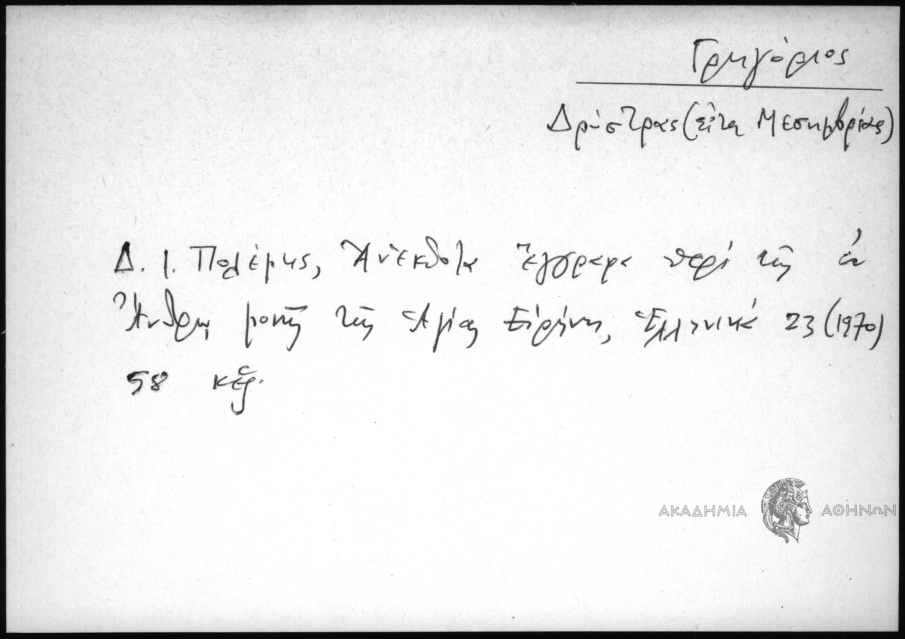 Γρηγόριος
Δρύστρας (εἶτα Μεσημβρίας)
Δ. Ι. Πολέμης, Ἀνέκδοτα ἔγγραφα περὶ τῆς ἐν
Ἄνδρῳ μονῆς τῆς Ἁγίας Εἰρήνης, Ἑλληνικά 23 (1970)
58 κἑξ.
ΑΚΑΔΗΜΙΑ ΑΘΗΝΩΝ